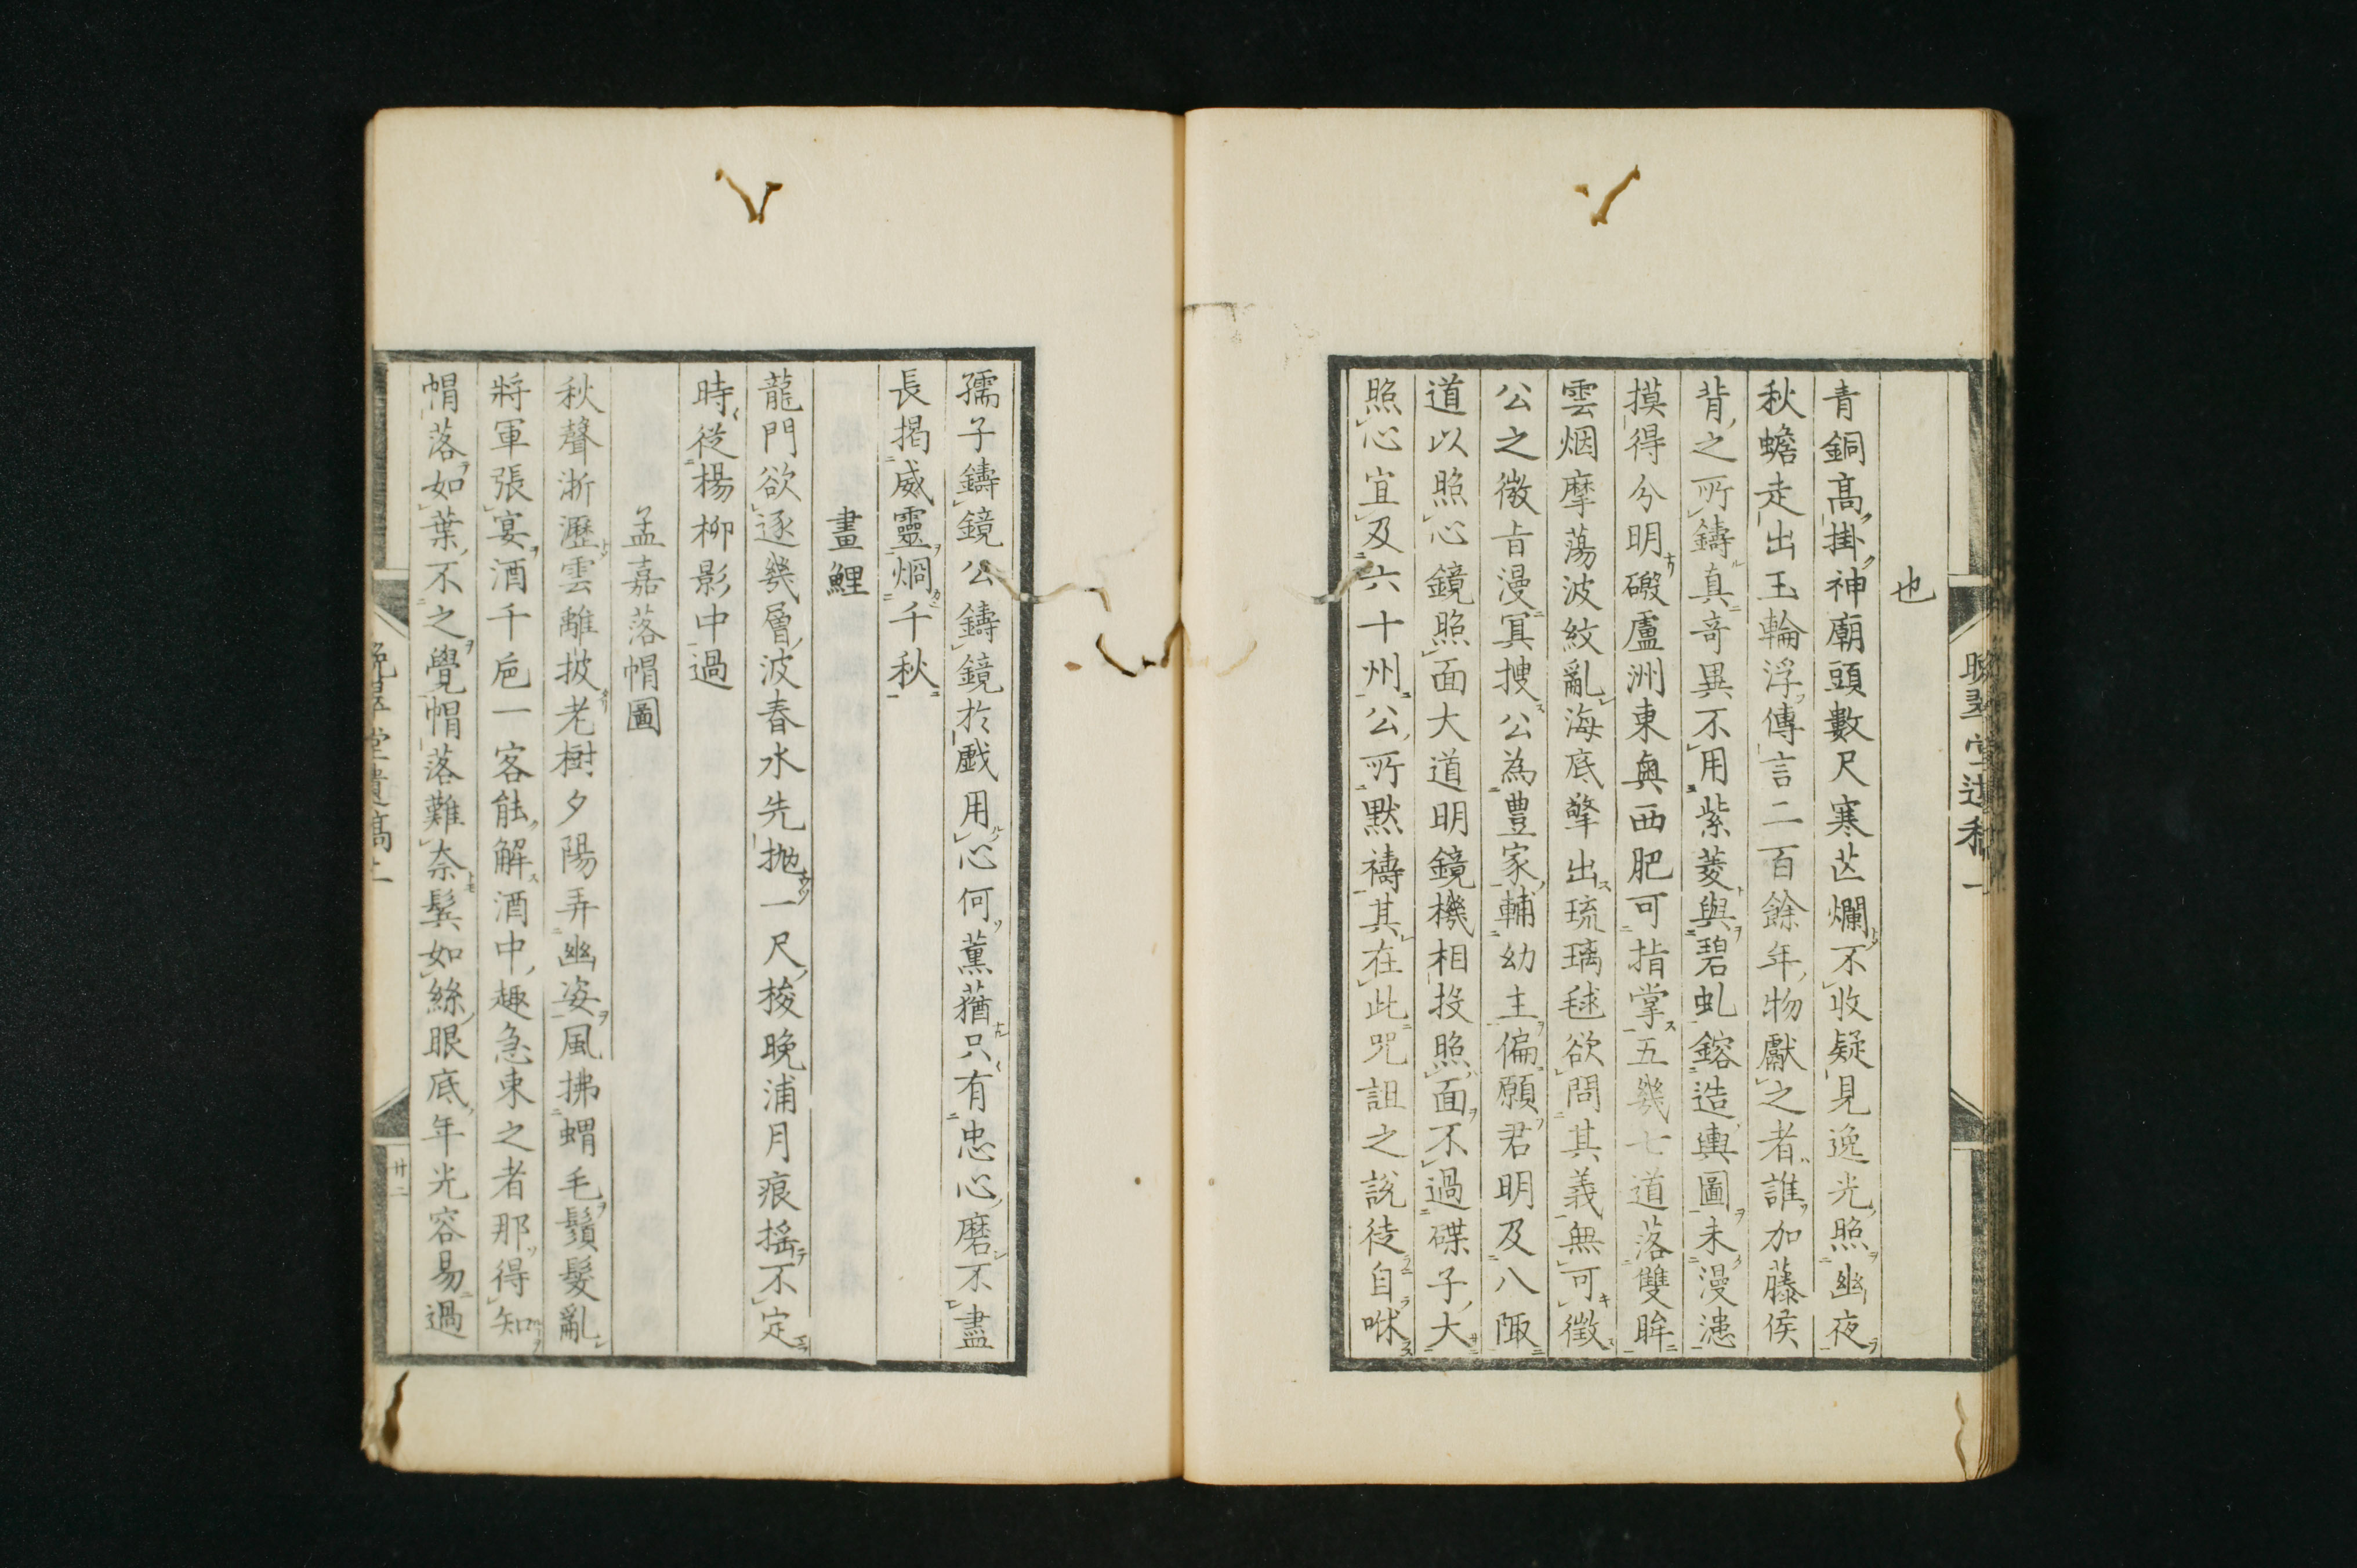 也
青銅高掛神廟頭數尺寒芒爛不收疑見逸光照幽夜
秋蟾走出玉輪浮傳言二百餘年物獻之者誰加藤侯
背之所鑄真奇異不用紫菱與碧虬鎔造輿圖未漫漶
摸得分明礮盧洲東奧西肥可指掌五畿七道落雙眸
雲烟摩蕩波紋亂海底擎出琉璃毬欲問其義無可徵
公之微旨漫冥搜公為豊家輔幼主偏願君明及八陬
道以照心鏡照面大道明鏡機相投照面不過碟子大
照心宜及六十州公所默禱其在此咒詛之說徒自咻
孺子鑄鏡公鑄鏡於戲用心何薰蕕只有忠心磨不盡
長揭威靈烱千秋
畫鯉
龍門欲逐幾層波春水先抛一尺梭晚浦月痕搖不定
時從楊柳影中過
孟嘉落帽圖
秋聲淅瀝雲離披老樹夕陽弄幽姿風拂蝟毛鬚髮亂
將軍張宴酒千巵一客能解酒中趣急束之者那得知
帽落如葉不之覺帽落難奈鬂如絲眼底年光容易過
晚翠堂遺稿上
廿二